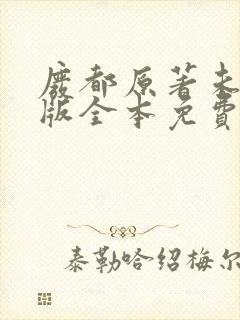 废都原著未
版全本免費
泰勒哈绍梅尔